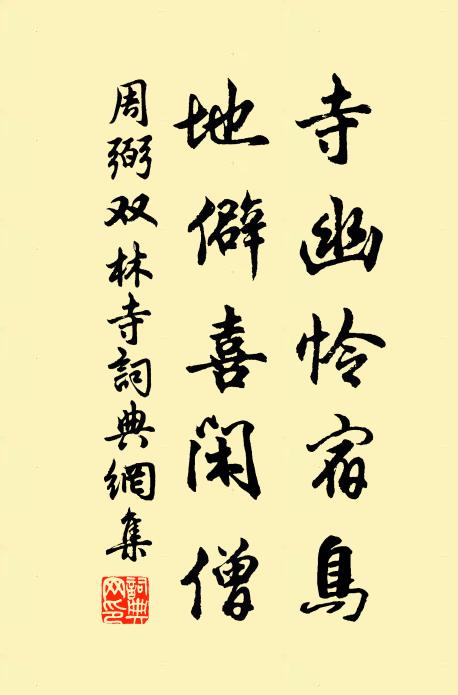 寺幽怜宿鳥
地僻喜闲僧
周弼双林寺詞典網集